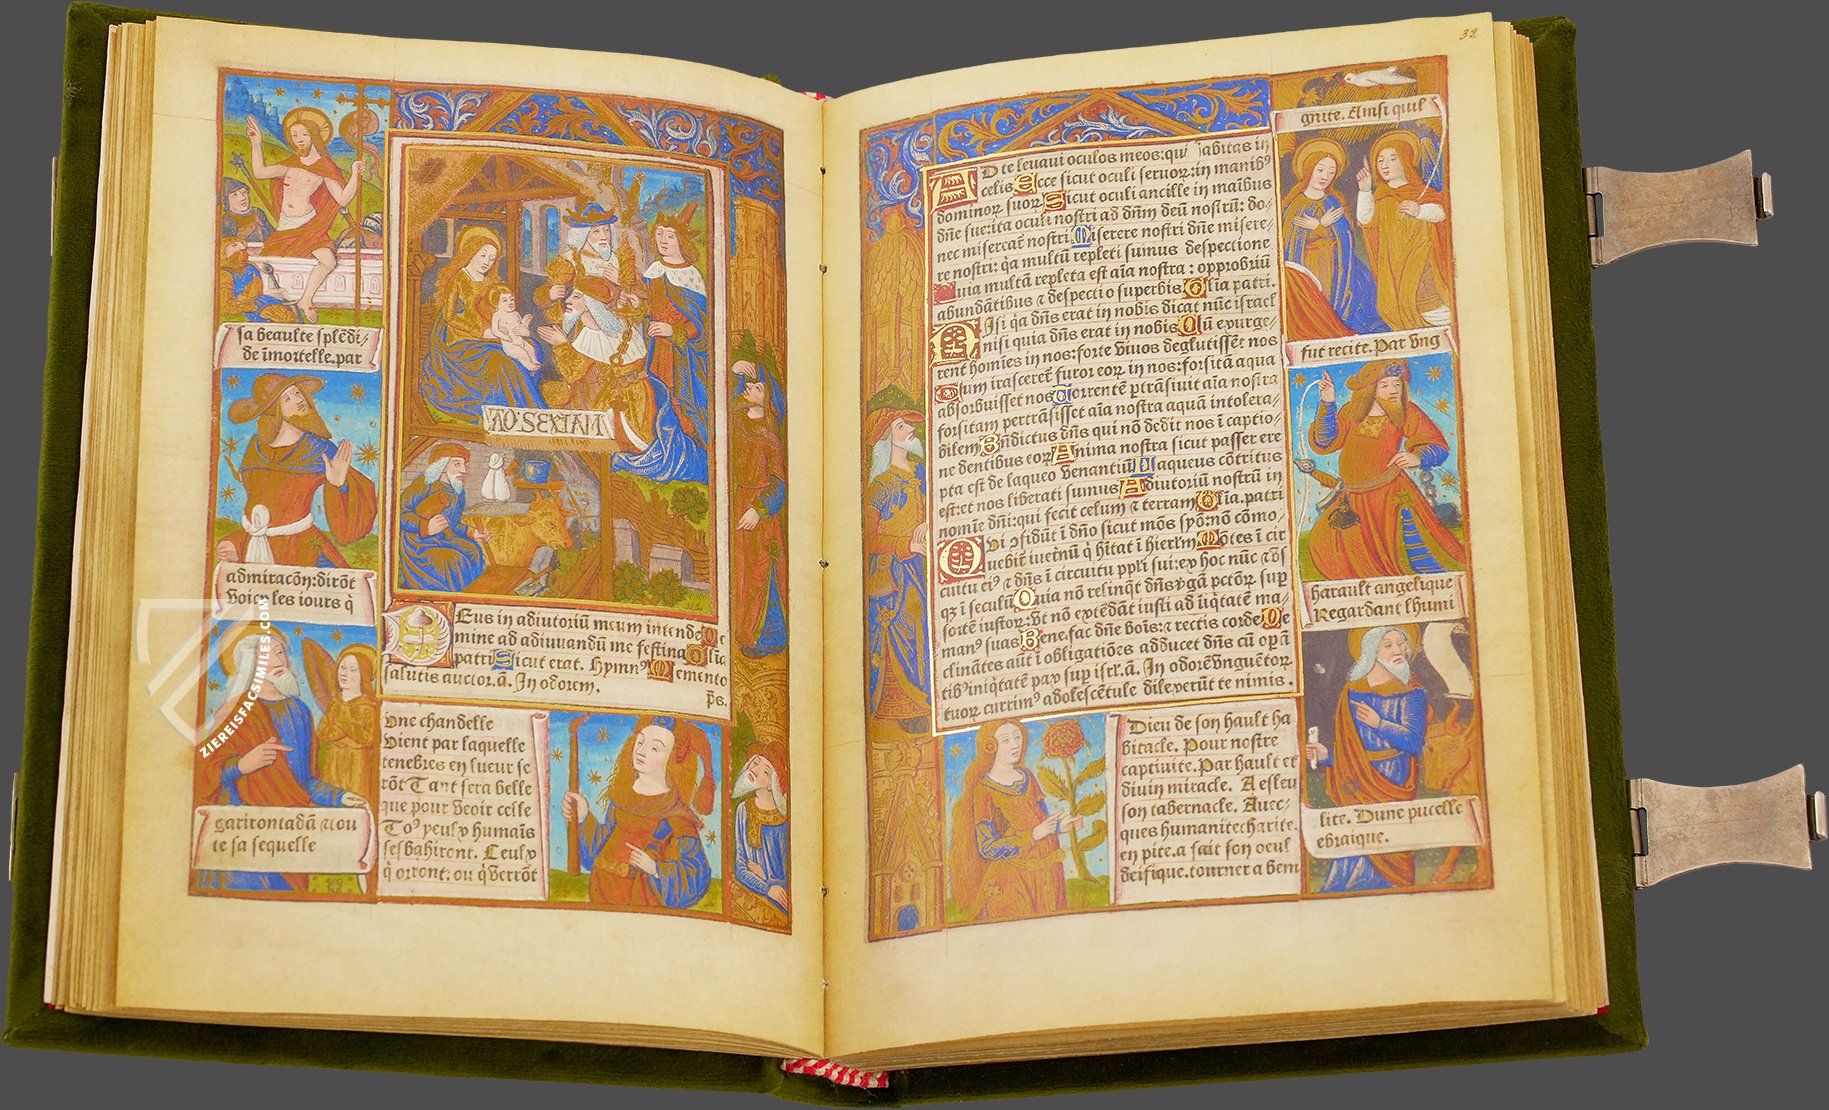 sa beaulte splẽdi/
de ĩmortelle.par
admiracõn:dirõt
Voicy les iours q̃
garirontadã et ou
ie sa sequelle
AO'SEXTAM
Eus in adiutoriũ meum intende
mine ad adiuuandũ me festina
patri Sicut erat. Hymn⁹ Memento
salutis auctor.ã. In odorem.
p̄s.
Vne chandelle
Vient par laquelle
tenebres en lueur se
rõt Tant sera belle
que pour Veoir celle
To⁹ yeulx humaĩs
sesbahiront. Ceulx
q̃ orront: ou q̃ Verrõt
ZIEREISFACSIMILES.COM
32
AD te leuaui oculos meos:qui habitas in
celis Ecce sicut oculi seruoꝝ:in manib⁹
dominoꝝ suoꝝ Sicut oculi ancille in maĩbus
dñe sue:ita oculi nostri ad dñm deũ nostrũ: do-
nec misereat̃ nostri Miserere nostri dñe misere-
re nostri: q̃a multũ repleti sumus despectione
Quia multũ repleta est aĩa nostra: opprobriũ
abundãtibus et despectio superbis Glia patri.
NIsi q̃a dñs erat in nobis dicat nũc israel
nisi quia dñs erat in nobis Cũ exurge-
rent homĩes in nos:forte Viuos deglutissẽt nos
Cum irasceret̃ furor eoꝝ in nos:forsitã aqua
absorbuisset nos Torrentẽ p̃trãsiuit aĩa nostra
forsitam pertrãsisset aĩa nostra aquã intolera-
bilem Bñdictus dñs qui nõ dedit nos ĩ captio-
ne dentibus eoꝝ Anima nostra sicut passer ere
pta est de laqueo Venantiũ Laqueus cõtritus
est:et nos liberati sumus Adiutoriũ nostrũ in
nomĩe dñi:qui fecit celum et terram Glia.patri
QVi ↄfidũt ĩ dño sicut mõs syõ:nõ cõmo-
uebit̃ ĩ eternũ q̃ hĩtat ĩ hierłm Mõtes ĩ cir
cuitu ei⁹ et dñs ĩ circuitu ppłi sui:ex hoc nũc et Vs
qꝫ ĩ seculũ Quia nõ relinq̃t dñs Virgã pctõꝝ sup
sortẽ iustoꝝ:Vt nõ extẽdãt iusti ad iniq̃tatẽ ma-
man⁹ suas Bene.fac dñe boĩs:et rectis corde De
clinãtes aũt ĩ obligatiões adducet dñs cũ opã
tib⁹ iniq̃tatẽ pax sup isrł.ã. In odorẽ Vnguẽtoꝝ
tuoꝝ currim⁹ adolescẽtule dilexerũt te nimis.
gnite. Ainsi quil
fut recite. Par Vng
harault angelique
Regardant lhumi
lite. Dune pucelle
ebraique.
Dieu de son hault ha
bitacle. Pour nostre
captiuite. Par hault et
diuin miracle. A esleu
son tabernacle. Auec-
ques humanite charite.
en pite.a fait son oeul
deifique.tourner a beni